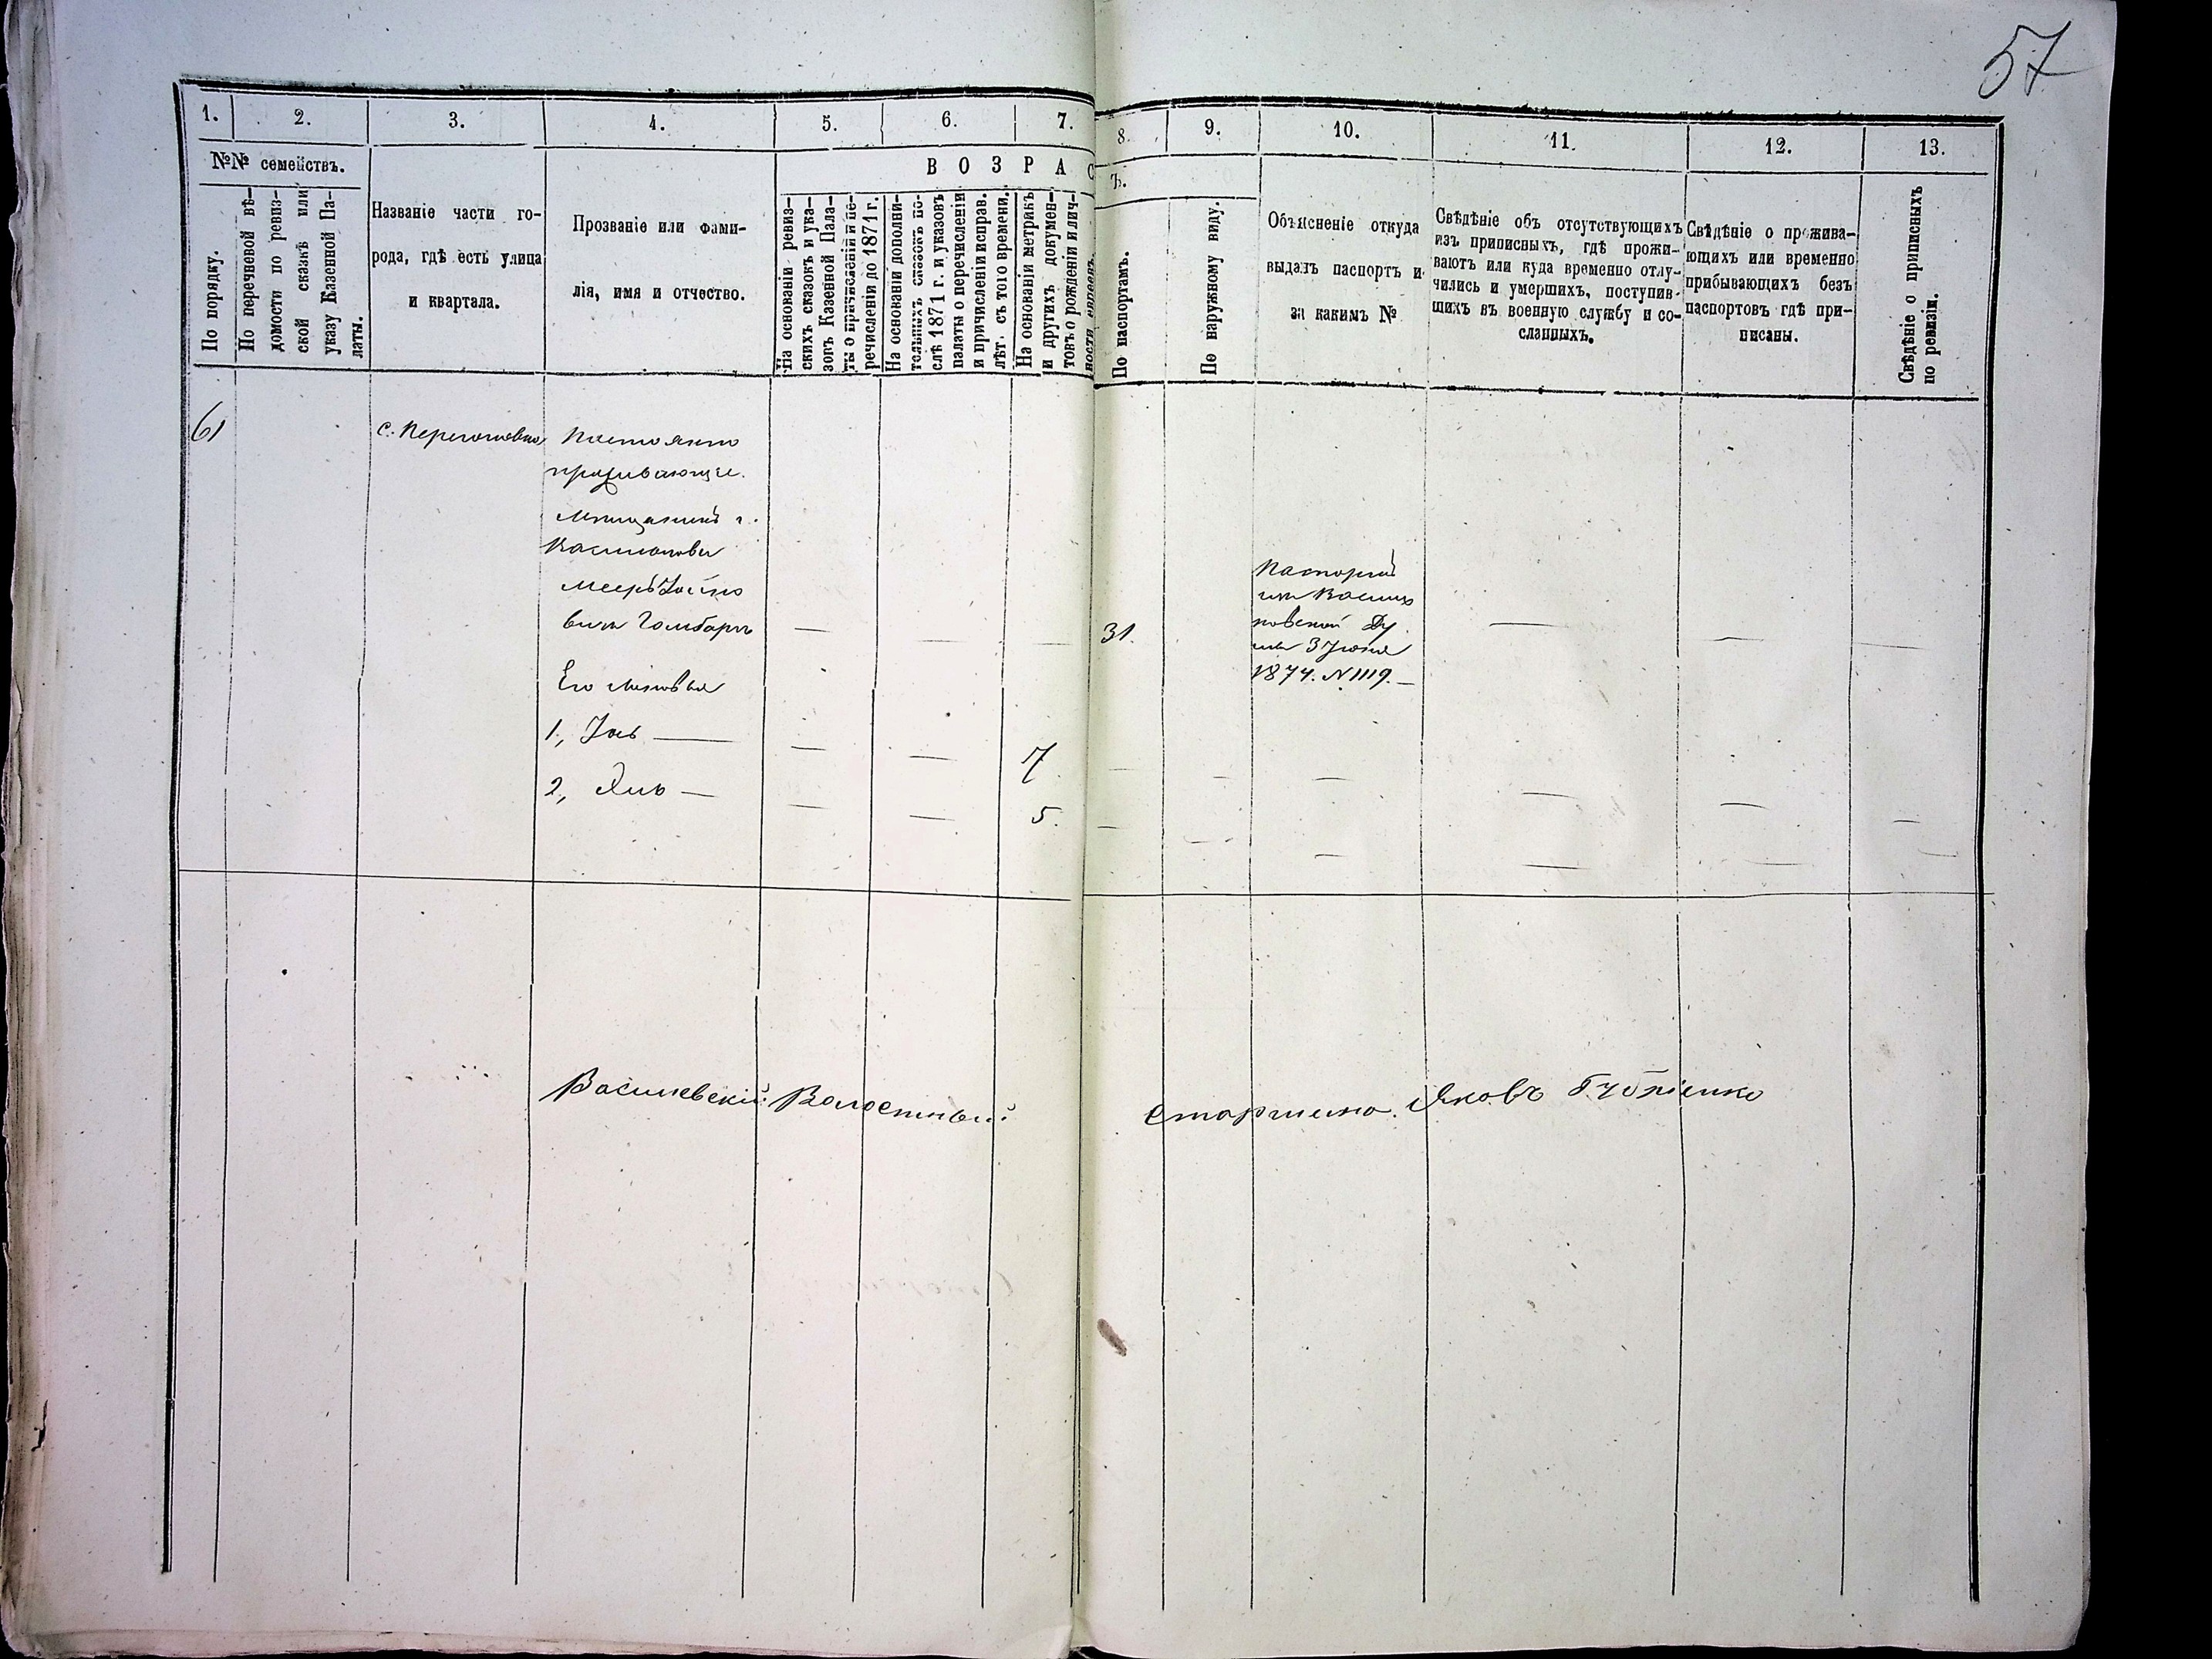 57
1. 2. 3. 4. 5. 6. 7. 8. 9. 10. 11. 12. 13.
№№ семействъ.
В О З Р А С
Ъ.
По порядку.
По перечневой вѣ-
домости по ревиз-
ской сказкѣ или
указу Казенной Па-
латы.
Названіе части го-
рода, гдѣ есть улица
и квартала.
Прозваніе или фами-
лія, имя и отчество.
На основаніи ревиз-
скихъ сказокъ и ука-
зовъ Казенной Пала-
ты о причисленіи и пе-
речисленіи до 1871 г.
На основаніи дополни-
тельныхъ сказокъ по-
слѣ 1871 г. и указовъ
палаты о перечисленіи
и причисленіи исправ.
лѣт. съ того времени.
На основаніи метрикъ
и другихъ докумен-
товъ о рожденіи и лич-
ности евреевъ.
По паспортамъ.
По наружному виду.
Объясненіе откуда
выданъ паспортъ и
за какимъ №
Свѣдѣніе объ отсутствующихъ
изъ приписныхъ, гдѣ прожи-
ваютъ или куда временно отлу-
чились и умершихъ, поступив-
шихъ въ военную службу и со-
сланныхъ.
Свѣдѣніе о прожива-
ющихъ или временно
прибывающихъ безъ
паспортовъ гдѣ при-
писаны.
Свѣдѣніе о приписныхъ
по ревизіи.
61
с.
Постоянно
проживающіе.
Мѣщанинъ г.
Василькова
Мееръ
вичъ
31.
Паспортъ
изъ Василь
ковской Ду
мы 3 Іюня
1874. N 1119.
Его сыновья
1, — 7
2, — 5.
Василевскій Волостный Старшина Яковъ